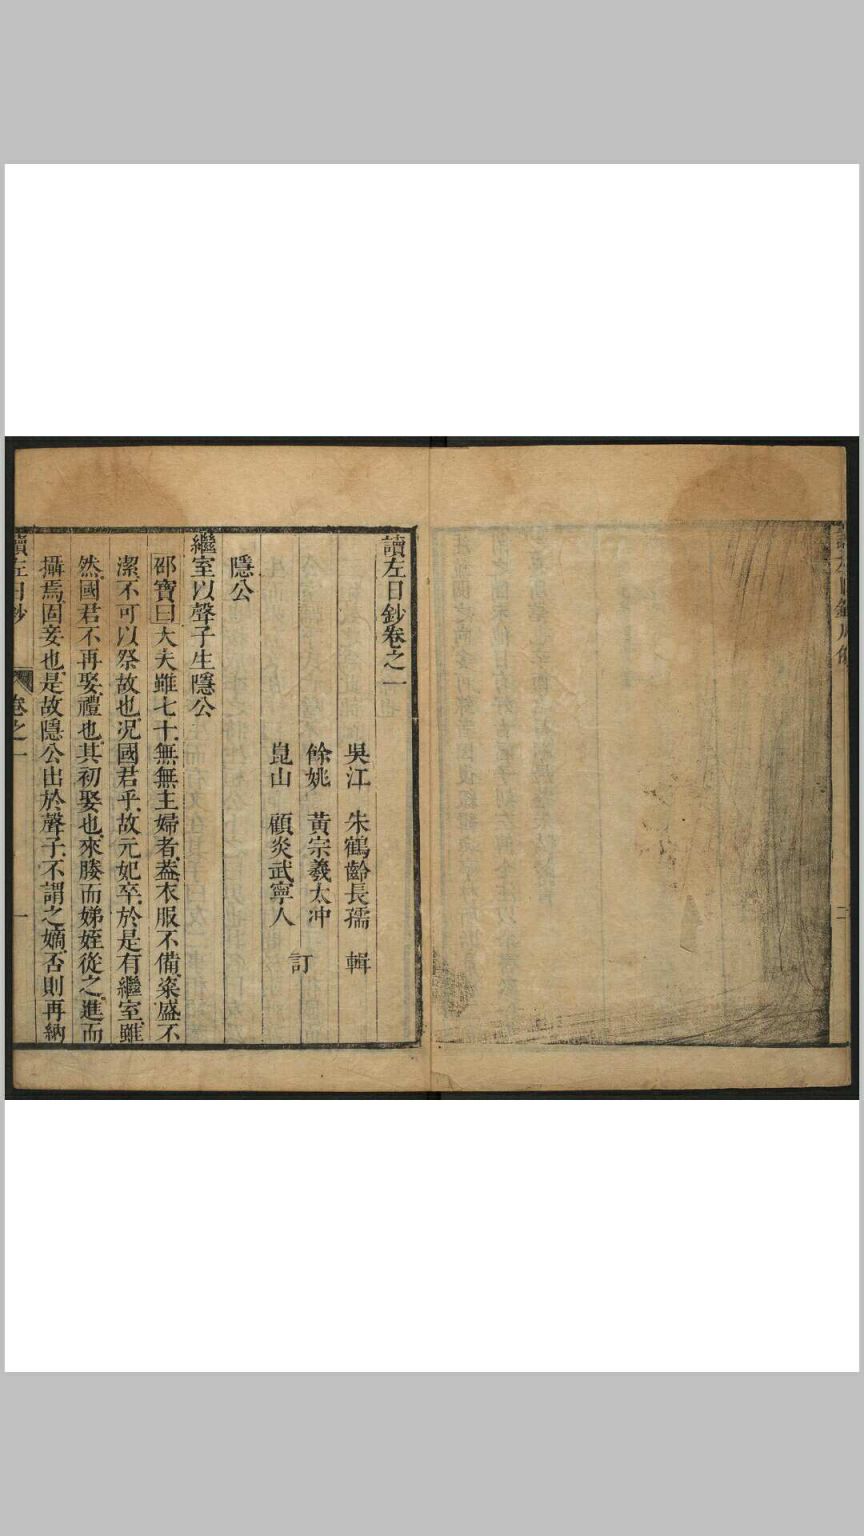 讀左日鈔卷之一
吳江　朱鶴齡長孺　輯
餘姚　黃宗羲太冲
崑山　顧炎武寧人
訂
隱公
繼室以聲子生隱公
邵寶曰大夫雖七十無無主婦者葢衣服不備粢盛不
潔不可以祭故也况國君乎故元妃卒於是有繼室雖
然國君不再娶禮也其初娶也來媵而娣姪從之進而
攝焉固妾也是故隱公出於聲子不謂之嫡否則再納
讀左日鈔　卷之一　一